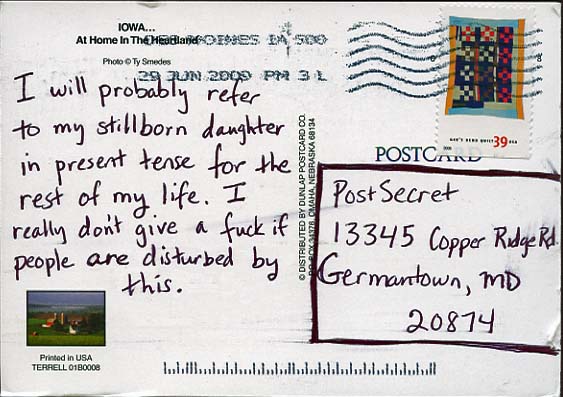 IOWA...
At Home In The Heartland
Photo © Ty Smedes
DES MOINES IA 500
29 JUN 2009 PM 3 L
I will probably refer
to my stillborn daughter
in present tense for the
rest of my life. I
really don't give a fuck if
people are disturbed by
this.
Printed in USA
TERRELL 01B0008
© DISTRIBUTED BY DUNLAP POSTCARD CO.
OMAHA, NEBRASKA 68134
GEE'S BEND QUILT 39 USA
POSTCARD
PostSecret
13345 Copper Ridge Rd.
Germantown, MD
20874